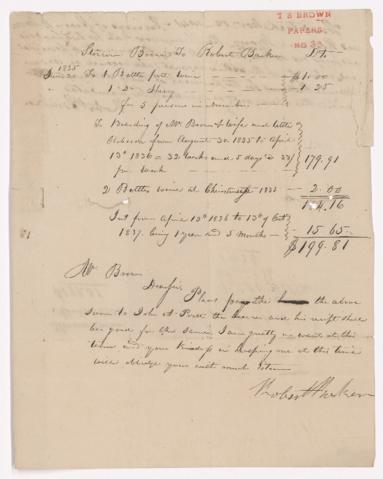 T S BROWN
PAPERS
NO
Brown To Robert Barker Dr.
1835
To 1 Bottle port wine $1.00
1 Do Sherry 1.25
for 5 persons
To Boarding of Mr Brown & wife and little
from August 30 1835 to April
13th 1836 = 32 weeks and 5 days @
per week 179.91
2 Bottles wine at Christmas 2.00
184.16
Int from April 13th 1836 to 13th of
1837 being 1 year and 5 months 15 65
$199.81
Mr Brown
Dear Sir Please pay the above
Sum to John A and his receipt shall
be good for the Same, I am greatly in want at this
time and your kindness in helping me at this time
will oblige your
Robert Barker